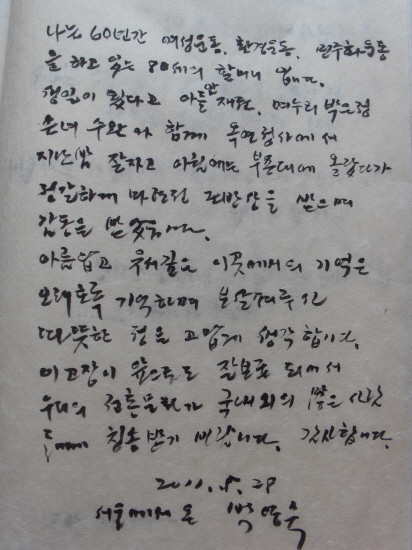 나는 60년간 여성운동, 환경운동, 민주화운동
을 하고 있는 80세의 할머니 입니다.
생일이 됬다고 아들 안재권, 며누리 박은정
손녀 수완과 함께 옥연정사에서
지난밤 잘자고 아침에는 부용대에 올랐다가
정갈하게 따뜻한 밥상을 받으며
감동을 받았읍니다.
아름답고 유서깊은 이곳에서의 기억은
오래토록 기억하며 보살펴주신
따뜻한 정을 고맙게 생각합니다.
이 고장이 앞으로도 잘보존 되여서
우리의 전통문화가 국내외의 많은 사람
칭송받기 바랍니다. 감사합니다.
2011. 5. 28
서울에서 온 박영숙